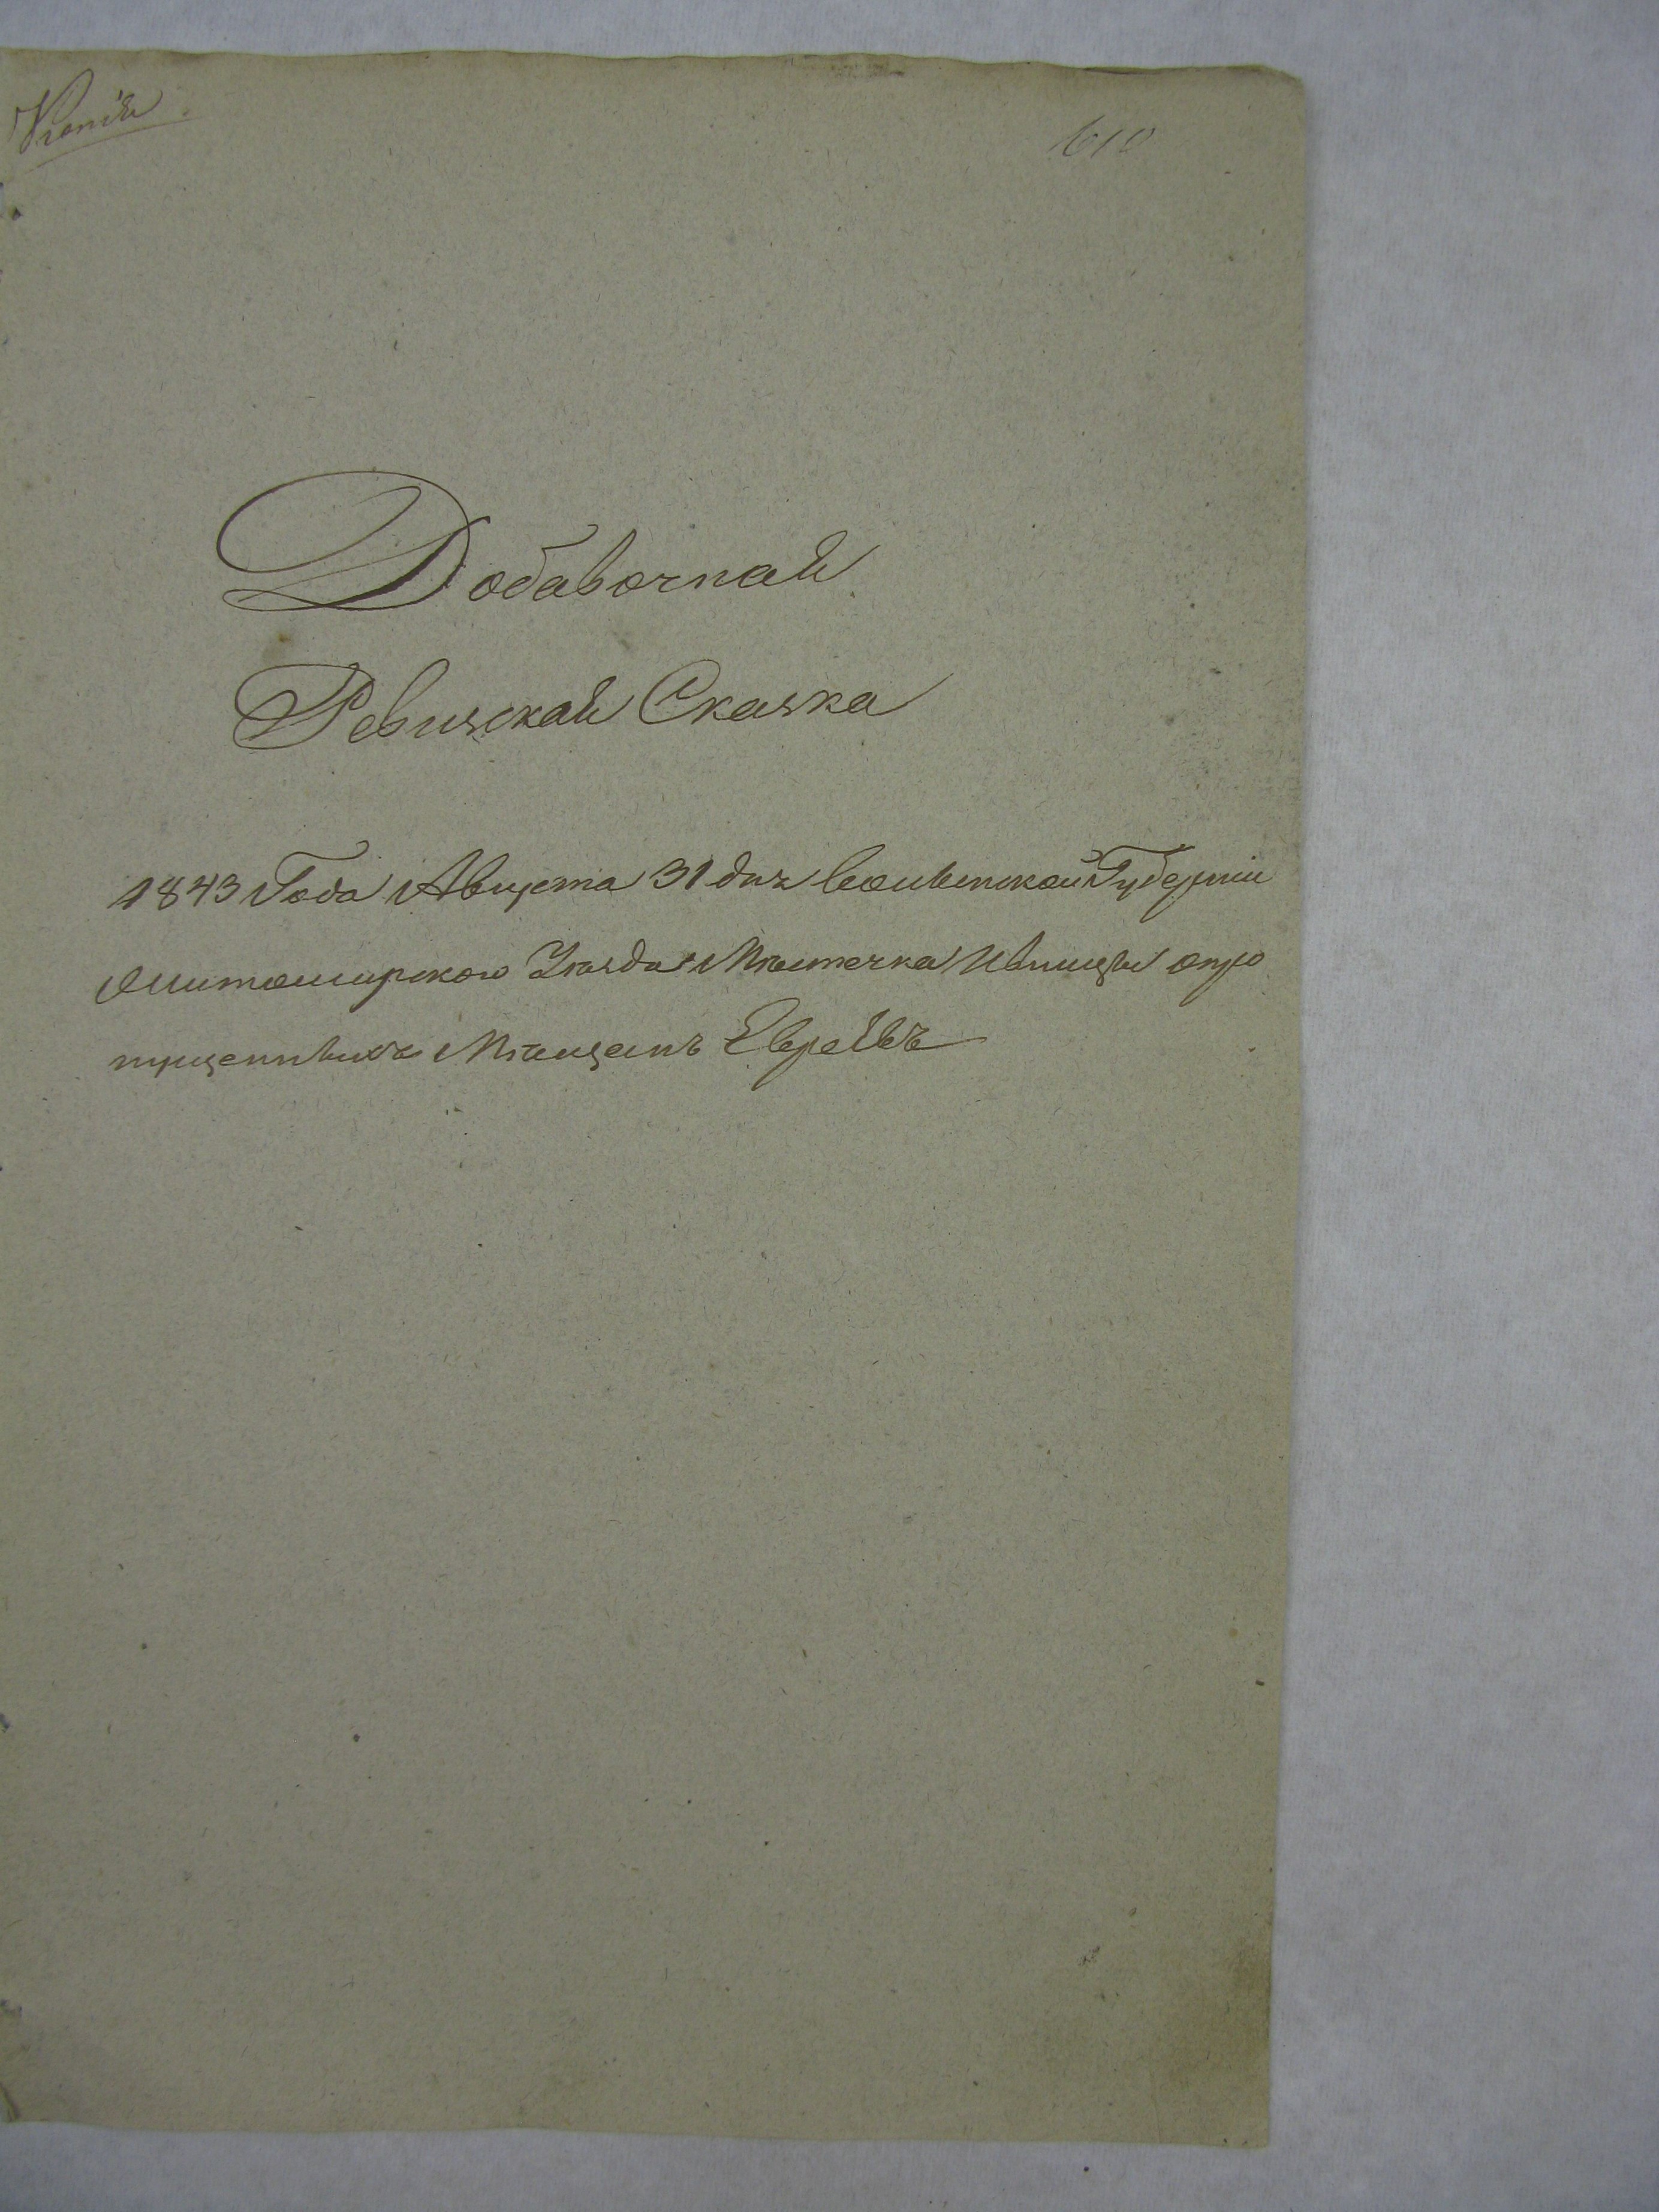 Копія
610
Добавочная
Ревизская Сказка
1843 Года Августа 31 дня Волынской Губерніи
Житомирского Уѣзда Мѣстечка Ивницы опро
пущенныхъ Мѣщанъ Евреѣвъ